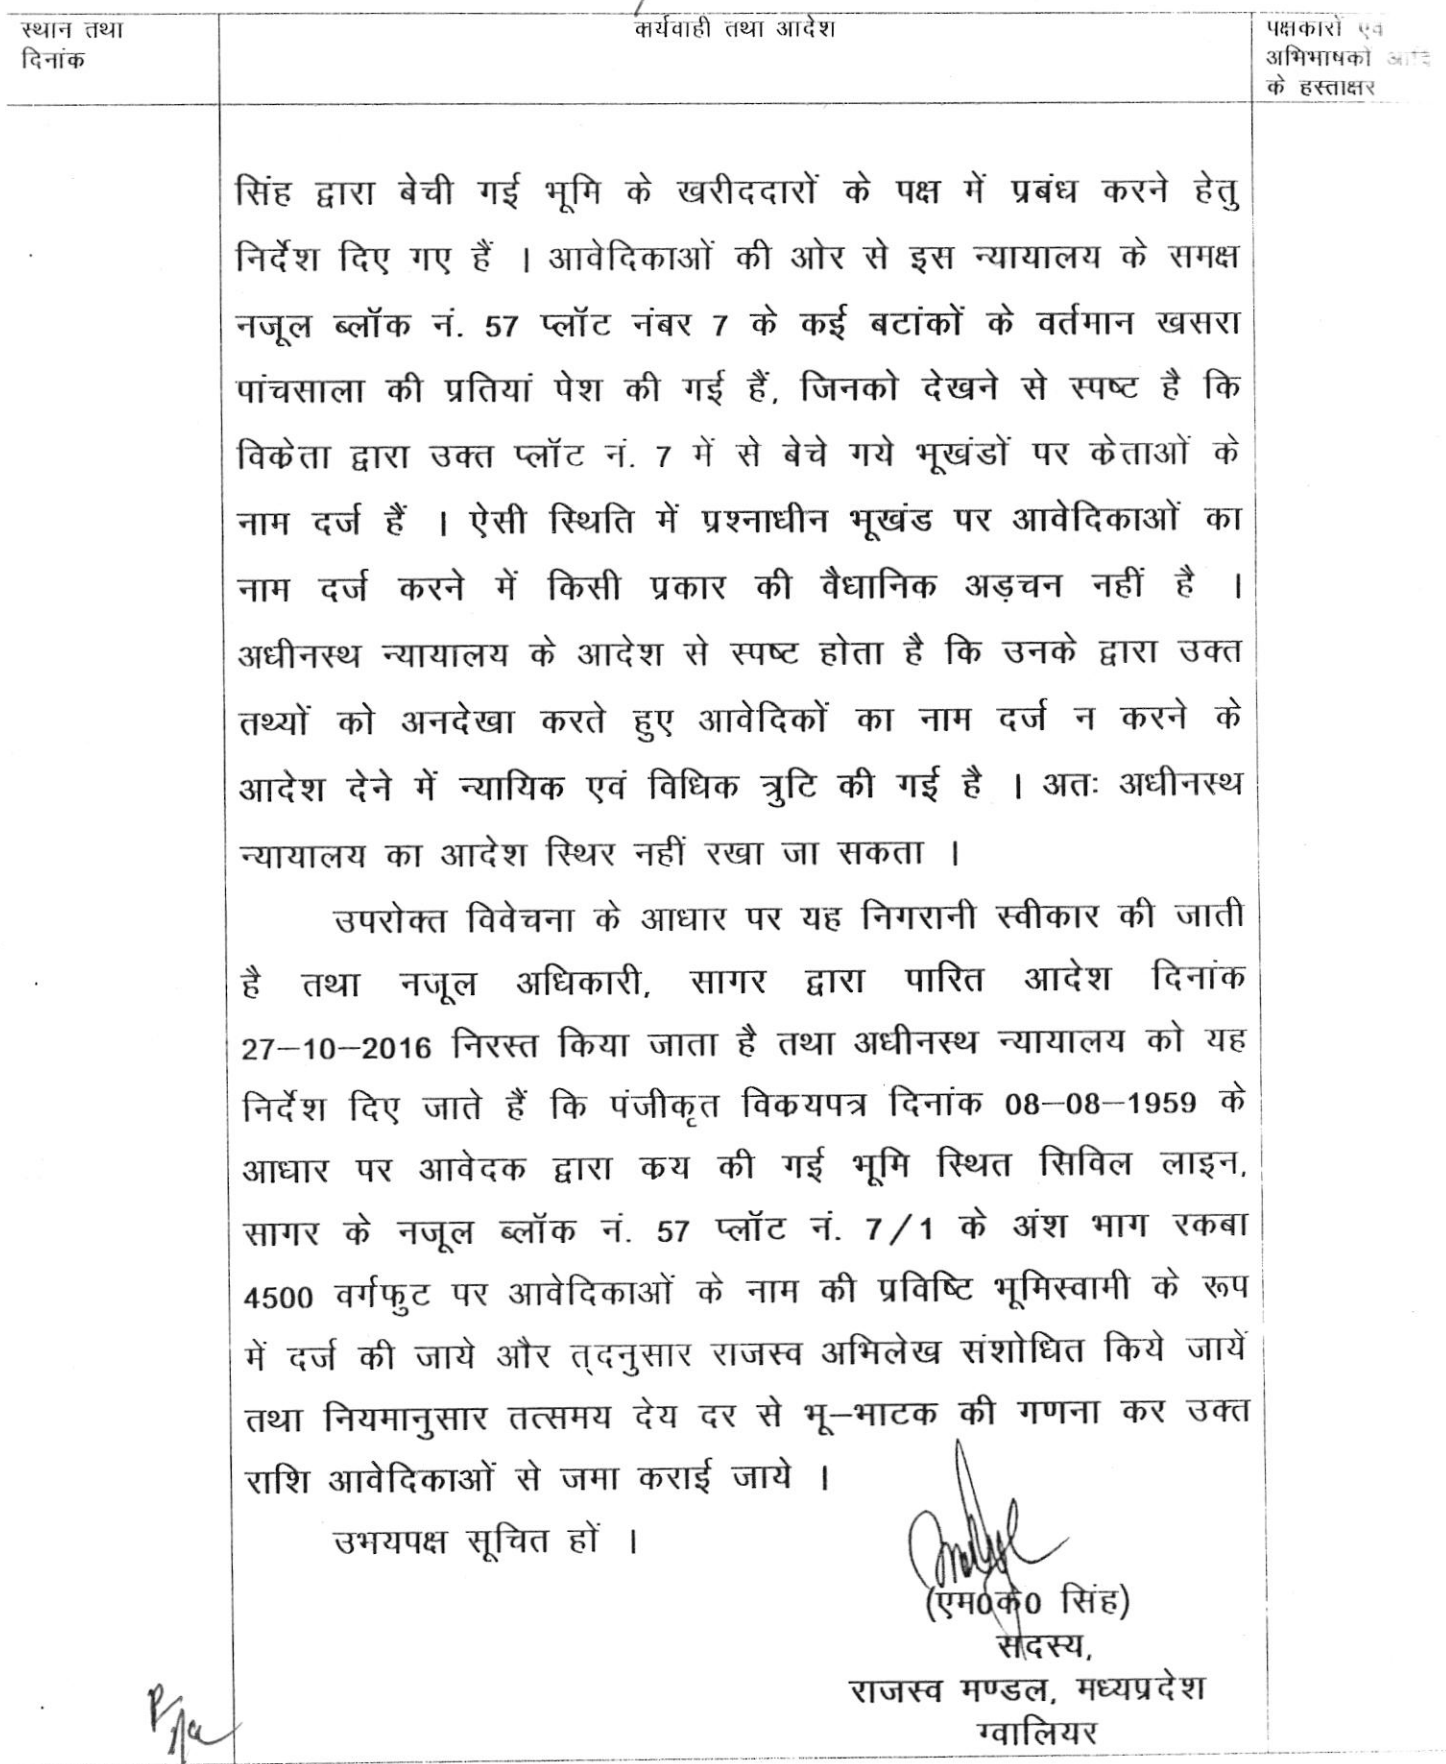 स्थान तथा
दिनांक
कार्यवाही तथा आदेश
पक्षकारों एवं
अभिभाषकों आदि
के हस्ताक्षर
सिंह द्वारा बेची गई भूमि के खरीददारों के पक्ष में प्रबंध करने हेतु
निर्देश दिए गए हैं । आवेदिकाओं की ओर से इस न्यायालय के समक्ष
नजूल ब्लॉक नं. 57 प्लॉट नंबर 7 के कई बटांकों के वर्तमान खसरा
पांचसाला की प्रतियां पेश की गई हैं, जिनको देखने से स्पष्ट है कि
विकेता द्वारा उक्त प्लॉट नं. 7 में से बेचे गये भूखंडों पर केताओं के
नाम दर्ज हैं । ऐसी स्थिति में प्रश्नाधीन भूखंड पर आवेदिकाओं का
नाम दर्ज करने में किसी प्रकार की वैधानिक अड़चन नहीं है ।
अधीनस्थ न्यायालय के आदेश से स्पष्ट होता है कि उनके द्वारा उक्त
तथ्यों को अनदेखा करते हुए आवेदिकों का नाम दर्ज न करने के
आदेश देने में न्यायिक एवं विधिक त्रुटि की गई है । अतः अधीनस्थ
न्यायालय का आदेश स्थिर नहीं रखा जा सकता ।
उपरोक्त विवेचना के आधार पर यह निगरानी स्वीकार की जाती
है तथा नजूल अधिकारी, सागर द्वारा पारित आदेश दिनांक
27–10–2016 निरस्त किया जाता है तथा अधीनस्थ न्यायालय को यह
निर्देश दिए जाते हैं कि पंजीकृत विकयपत्र दिनांक 08–08–1959 के
आधार पर आवेदक द्वारा कय की गई भूमि स्थित सिविल लाइन,
सागर के नजूल ब्लॉक नं. 57 प्लॉट नं. 7/1 के अंश भाग रकबा
4500 वर्गफुट पर आवेदिकाओं के नाम की प्रविष्टि भूमिस्वामी के रूप
में दर्ज की जाये और त्दनुसार राजस्व अभिलेख संशोधित किये जायें
तथा नियमानुसार तत्समय देय दर से भू–भाटक की गणना कर उक्त
राशि आवेदिकाओं से जमा कराई जाये ।
उभयपक्ष सूचित हों ।
(एम0के0 सिंह)
सदस्य,
राजस्व मण्डल, मध्यप्रदेश
ग्वालियर